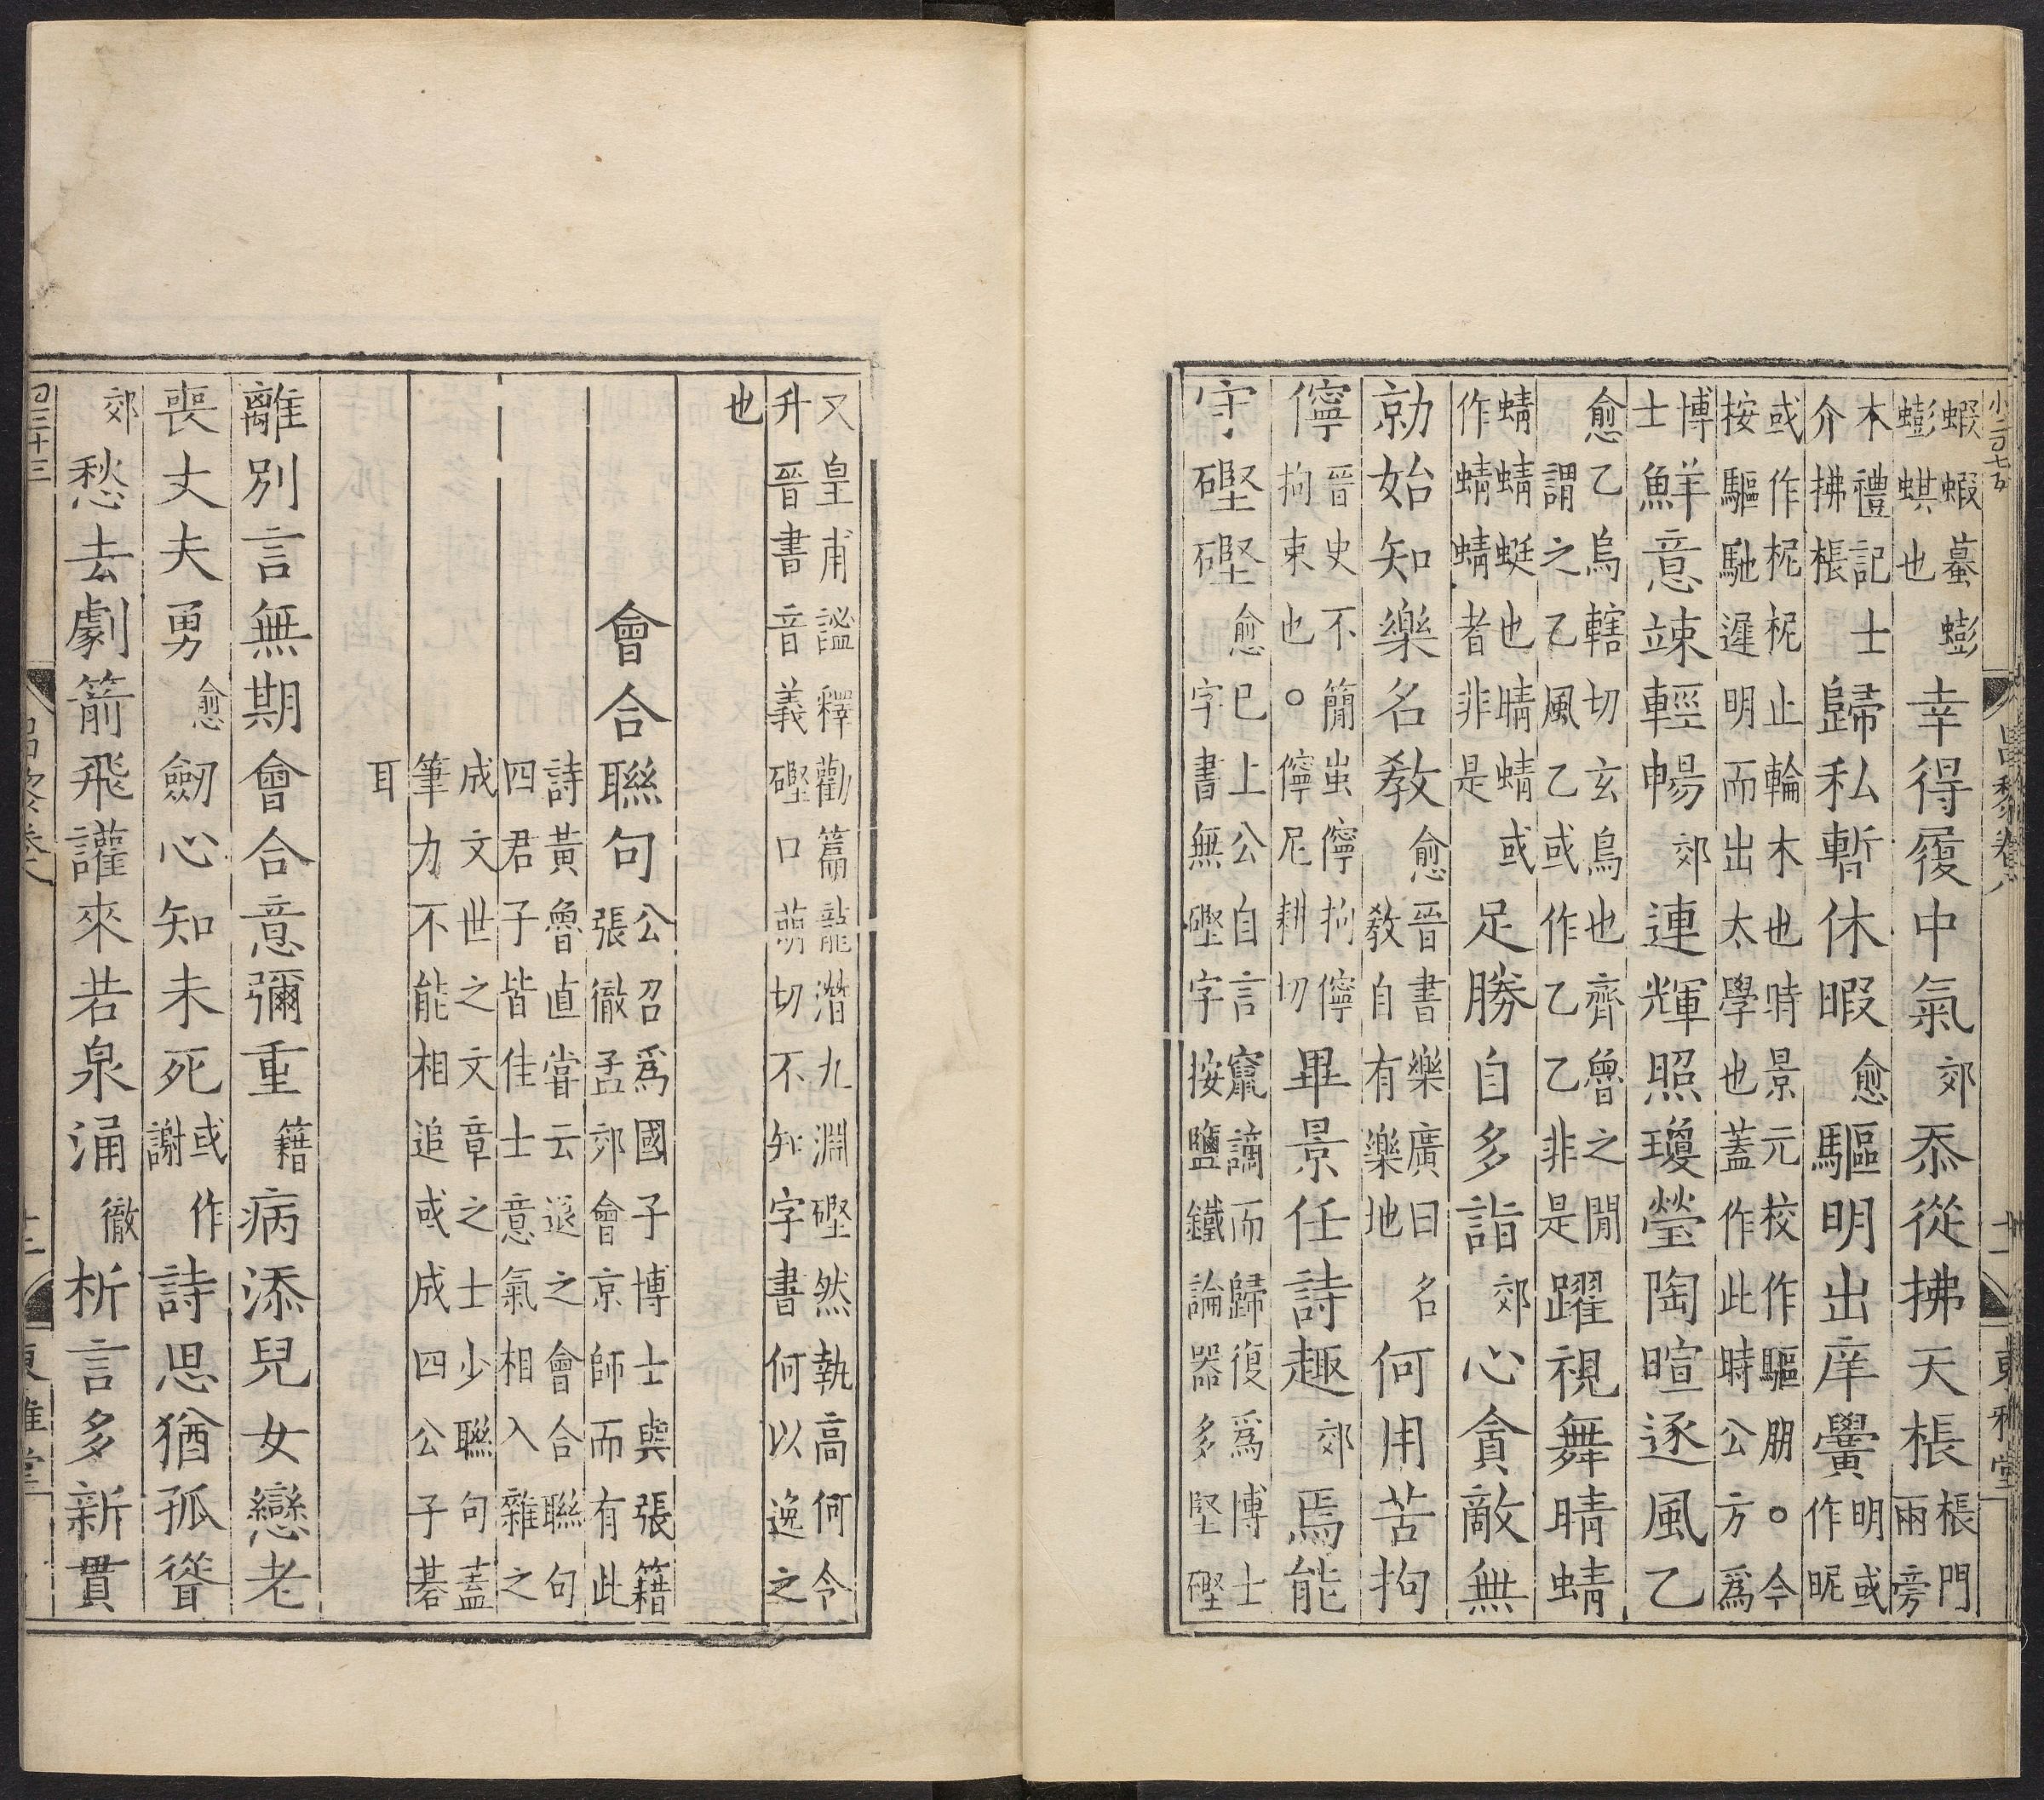 蝦蝦蟇蟛蟛蜞也幸得履中氣郊忝從拂天棖棖門兩旁
木禮記士介拂棖歸私暫休暇愈驅明出庠黌明或作昵
或作柅柅止輪木也時景元校作驅朋○今按驅馳遲明而出太學也蓋作此時公方為
博士鮮意竦輕暢郊連輝照瓊瑩陶暄逐風乙
愈乙烏轄切玄鳥也齊魯之閒謂之乙乙風乙或作乙乙非是躍視舞晴蜻
蜻蜻蜓也晴蜻或作蜻蜻者非是足勝自多詣郊心貪敵無
勍始知樂名教愈晉書樂廣曰名教自有樂地何用苦拘
儜晉史不簡蚩儜拘儜拘束也○儜尼耕切畢景任詩趣郊焉能
守䃘䃘愈已上公自言竄謫而歸復爲博士字書無䃘字按鹽鐵論器多堅䃘
昌黎卷八 十一 東雅堂
又皇甫謐釋勸篇龍潛九淵䃘然執高何令升晉書音義䃘口莖切不知字書何以逸之
也
會合聯句公召爲國子博士與張籍張徹孟郊會京師而有此
詩黃魯直嘗云退之會合聯句四君子皆佳士意氣相入雜之
成文世之文章之士少聯句蓋筆力不能相追或成四公子碁
耳
離別言無期會合意彌重籍病添兒女戀老
喪丈夫勇愈劒心知未死或作謝詩思猶孤聳
郊愁去劇箭飛讙來若泉涌徹析言多新貫
昌黎卷八 十二 東雅堂